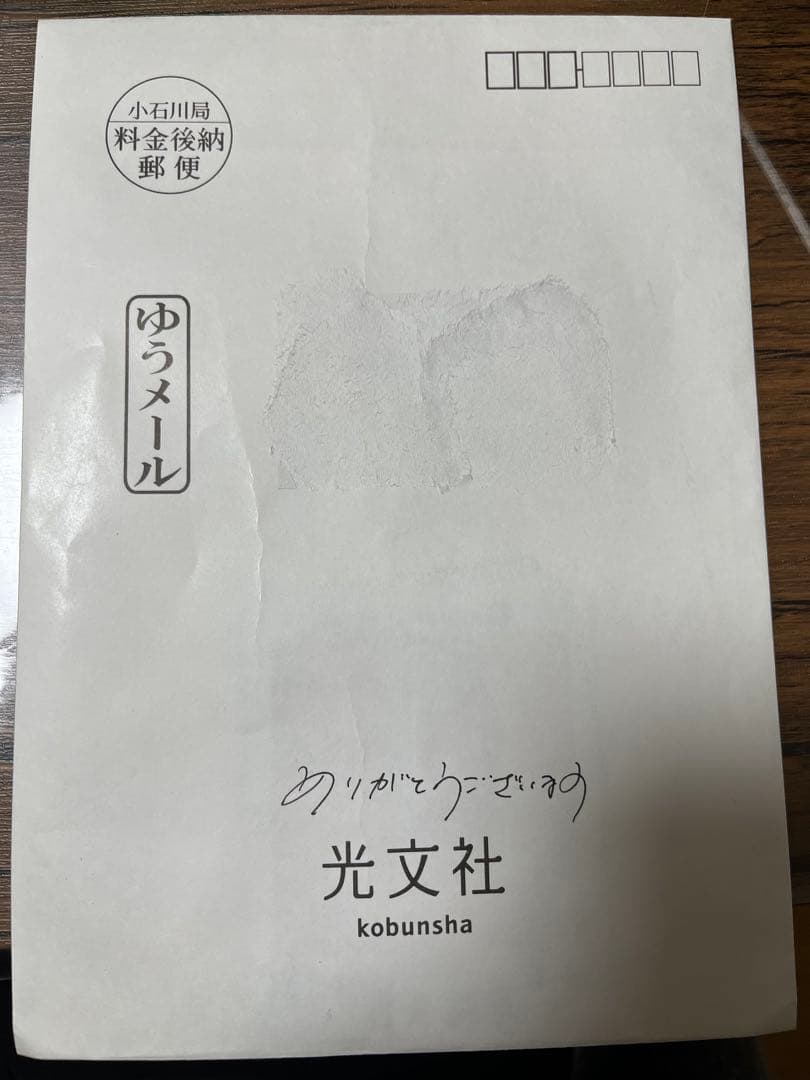 小石川局
料金後納
郵便
ゆうメール
ありがとうございます
光文社
kobunsha